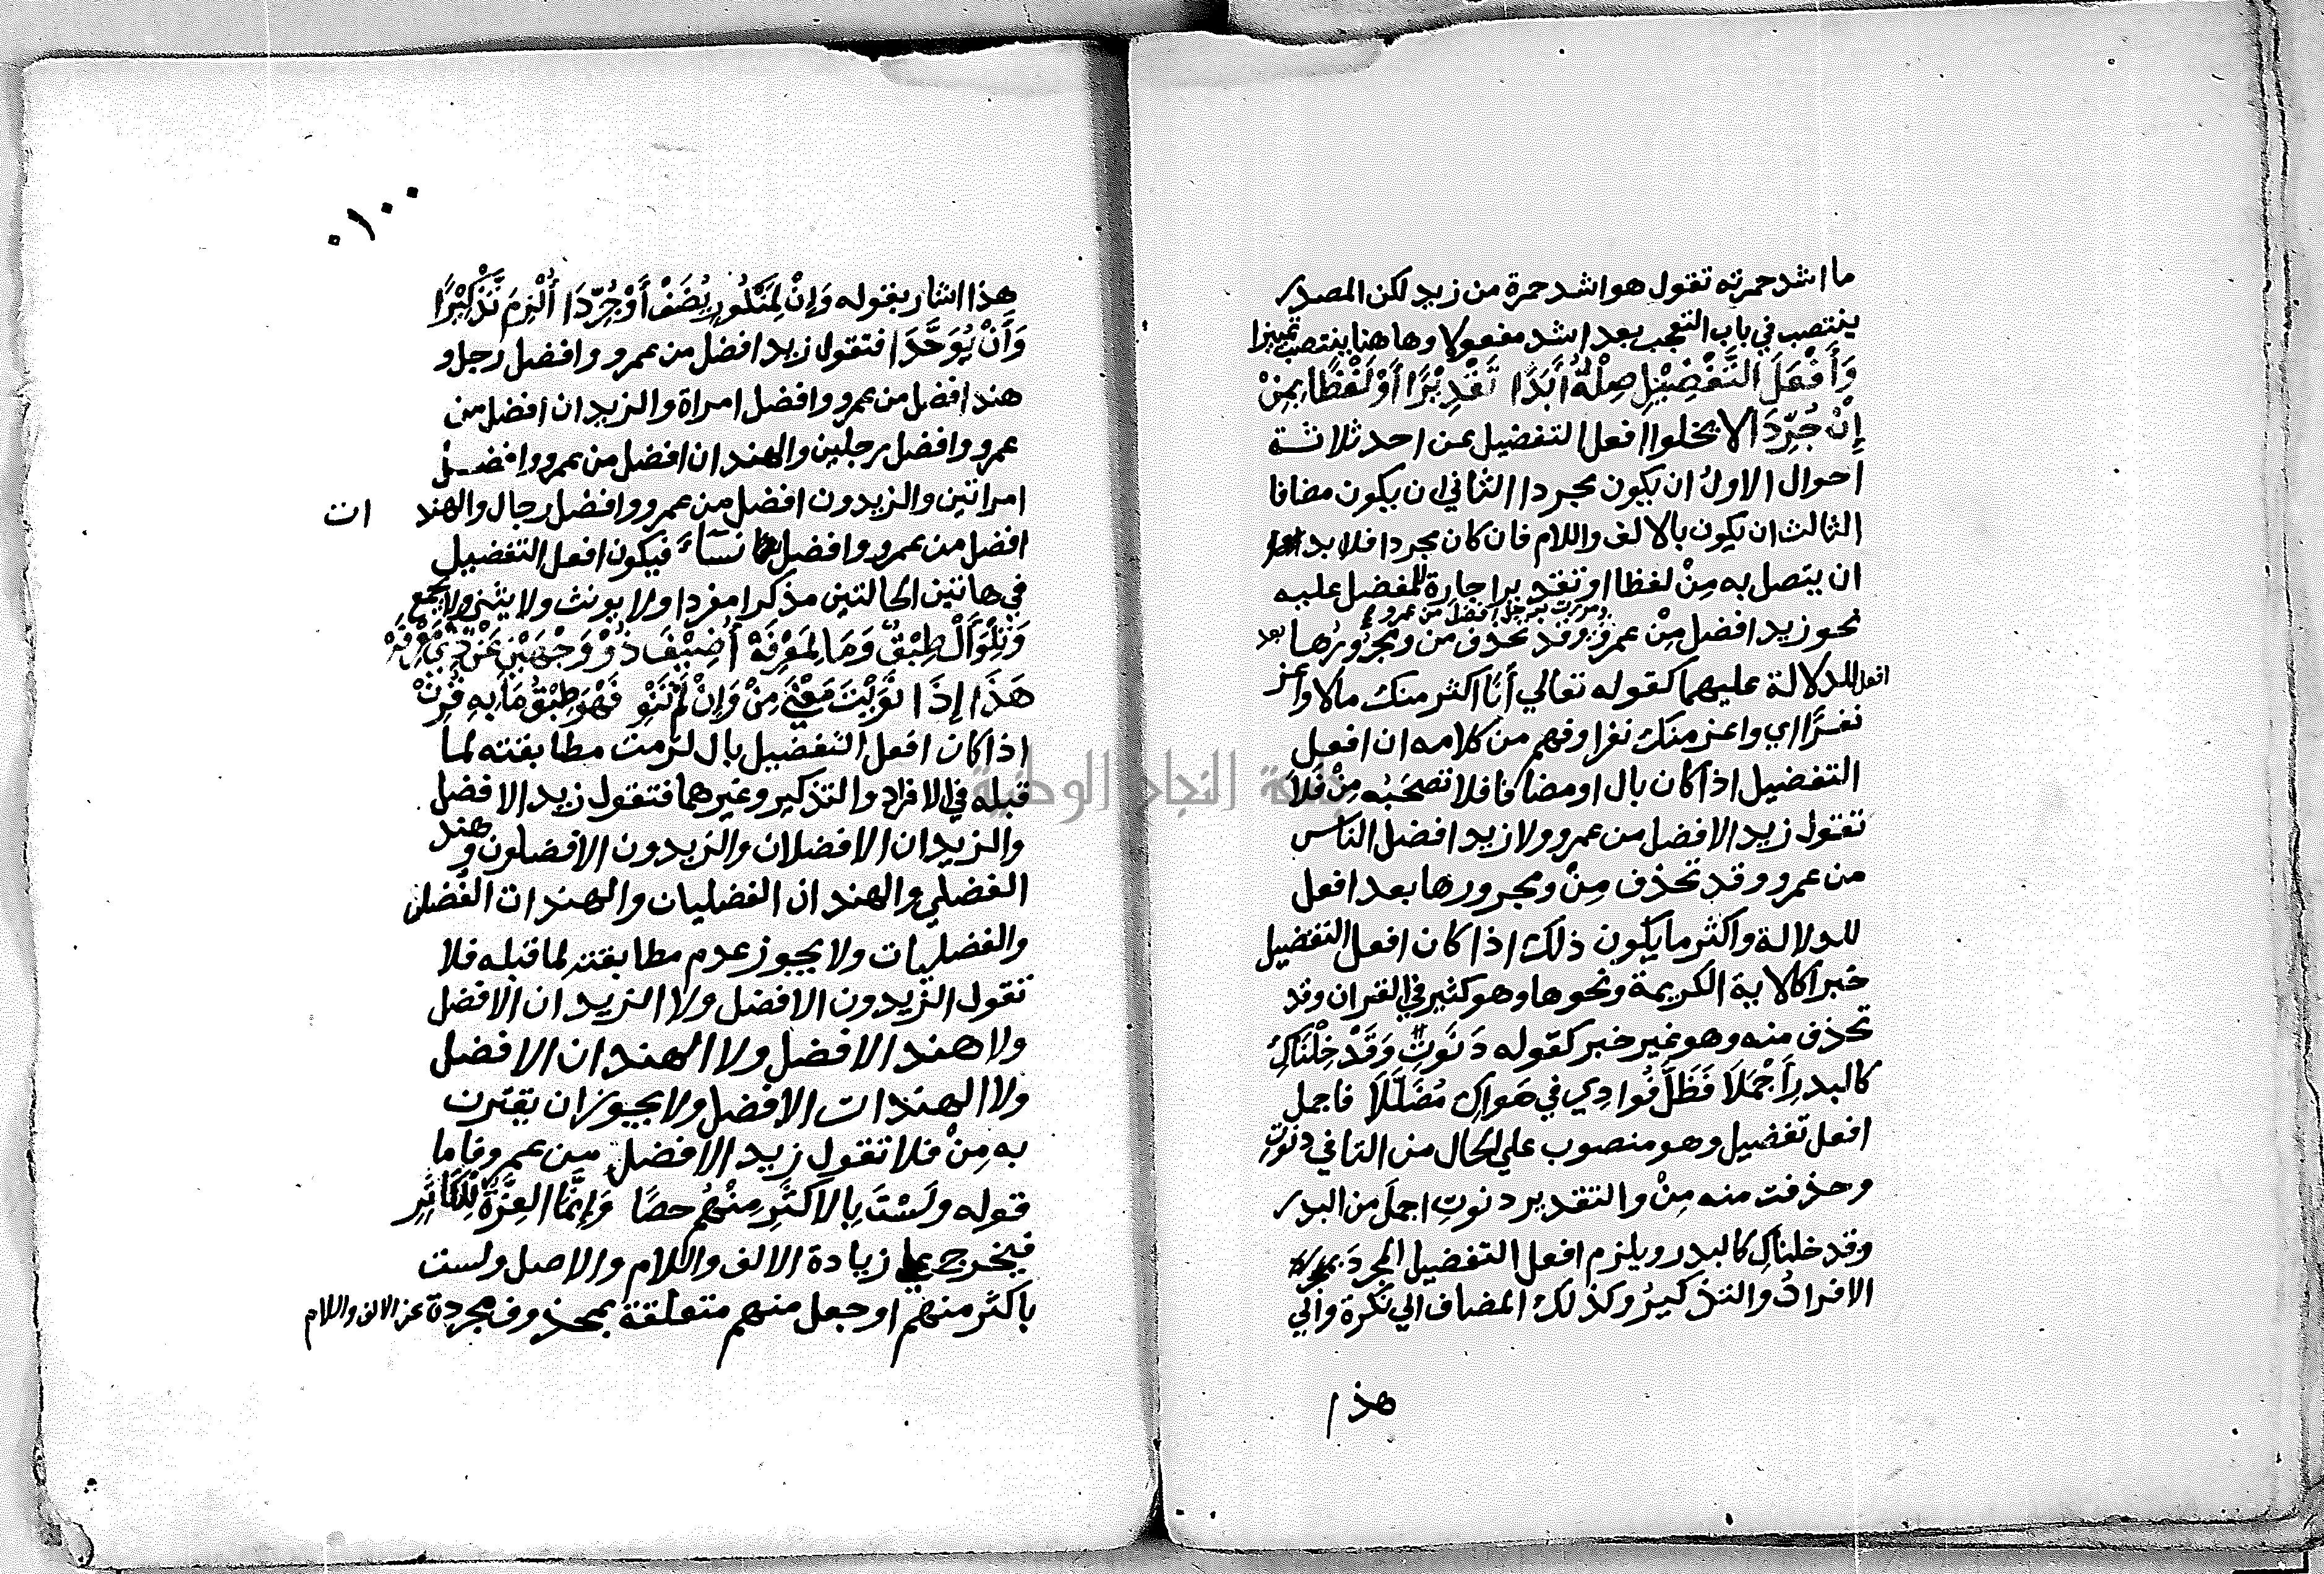 ما اشد حمرته تقول هو اشد حمرة من زيد لكن المصدر
ينتصب في باب التعجب بعد اشد مفعولا وها هنا ينتصب تمييزا
وَأَفْعَلَ التَّفْضِيْلِ صِلْهُ أَبَدًا تَقْدِيْرًا أَوْ لَفْظًا بِمِنْ
إِنْ جُرِّدَا لا يخلوا افعل التفضيل عن احد ثلاثة
احوال الاول ان يكون مجردا الثاني ان يكون مضافا
الثالث ان يكون بالالف واللام فان كان مجردا فلا بد
ان يتصل به مِنْ لفظا او تقديرا جارة للمفضل عليه
ومررت برجل افضل من عمرو
نحو زيد افضل مِنْ عمرو وقد تحذف من ومجرورها بعد
افعل للدلالة عليهما كقوله تعالي أنا اكثر منك مالا واعز
نفرًا اي واعز منك نفرا وفهم من كلامه ان افعل
التفضيل اذا كان بال او مضافا فلا تصحبُه مِنْ فلا
تقول زيد الافضل من عمرو ولا زيد افضل الناس
من عمرو وقد تحذف مِنْ ومجرورها بعد افعل
للدلالة واكثر ما يكون ذلك اذا كان افعل التفضيل
خبرا كالاية الكريمة ونحوها وهو كثير في القران وقد
تحذف منه وهو غير خبر كقوله دَنَوتِ وَقَدْ خِلْنَاكِ
كالبدرِ أَجْمَلَا فَظَلَّ فُوادِي في هَواكِ مُضَلَّلَا فاجمل
افعل تفضيل وهو منصوب علي الحال من التا في دنوتِ
وحذفت منه مِنْ والتقدير دنوتِ اجملَ من البدر
وقد خلناكِ كالبدر ويلزم افعل التفضيل المجردَ
الافرادُ والتذكيرُ وكذلك المضاف الي نكرة والي
هذا
١٠٠
هذا اشار بقوله وَإِنْ لِمَنْكُورٍ يُضَفْ أَوْ جُرِّدَا أُلْزِمَ تَذْكِيْرًا
وَأَنْ يُوَحَّدَا فتقول زيد افضل من عمرو وافضل رجل و
هند افضل من عمرو وافضل امراة والزيدان افضل من
عمرو وافضل رجلين والهندان افضل من عمرو وافضل
امراتين والزيدون افضل من عمرو وافضل رجال والهند ات
افضل من عمرو وافضل نسآء فيكون افعل التفضيل
في هاتين الحالتين مذكرا مفردا ولا يونث ولا يثني ولا يجمع
وَتِلْوَ أَلْ طِبْقٌ وَمَا لِمَعْرِفَهْ أُضِيْفَ ذُوْ وَجْهَيْنِ عَنْ ذِيْ مَعْرِفَهْ
هَذَا إِذَا نَوَيْتَ مَعْنَى مِنْ وَإِنْ لَمْ تَنْوِ فَهْوَ طِبْقُ مَا بِهِ قُرِنْ
اذا كان افعل التفضيل بال لزمت مطابقته لما
قبله في الافراد والتذكير وغيرهما فتقول زيد الافضل
والزيدان الافضلان والزيدون الافضلون وهند
الفضلي والهندان الفضليان والهندات الفُضَل
والفضليات ولا يجوز عدم مطابقته لما قبله فلا
تقول الزيدون الافضل ولا الزيدان الافضل
ولا هند الافضل ولا الهندان الافضل
ولا الهندات الافضل ولا يجوز ان يقترن
به مِنْ فلا تقول زيد الافضل من عمرو فاما
قوله ولَسْتَ بِالاكثرِ مِنْهُم حصًا وَإِنَّمَا العِزَّةُ لِلْكَاثِرِ
فيخرج علي زيادة الالف واللام والاصل ولست
باكثر منهم او جعل منهم متعلقة بمحذوف مجردة عن الالف واللام
جامعة النجاح الوطنية